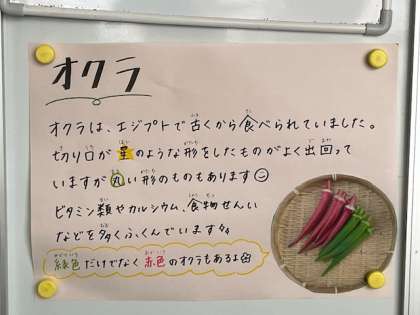 オクラ
オクラは、エジプトで古くから食べられていました。
切り口が星のような形をしたものがよく出回って
いますが丸い形のものもあります
ビタミン類やカルシウム、食物せんい
などを多くふくんでいます
緑色だけでなく赤色のオクラもあるよ